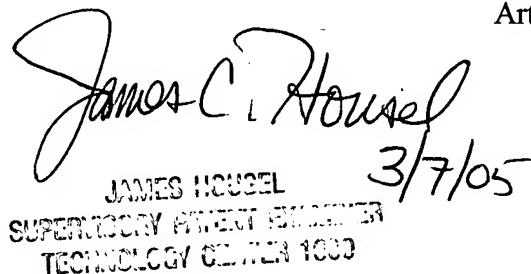 Art
James C. Housel
3/7/05
JAMES HOUSEL
SUPERVISORY PATENT EXAMINER
TECHNOLOGY CENTER 1600